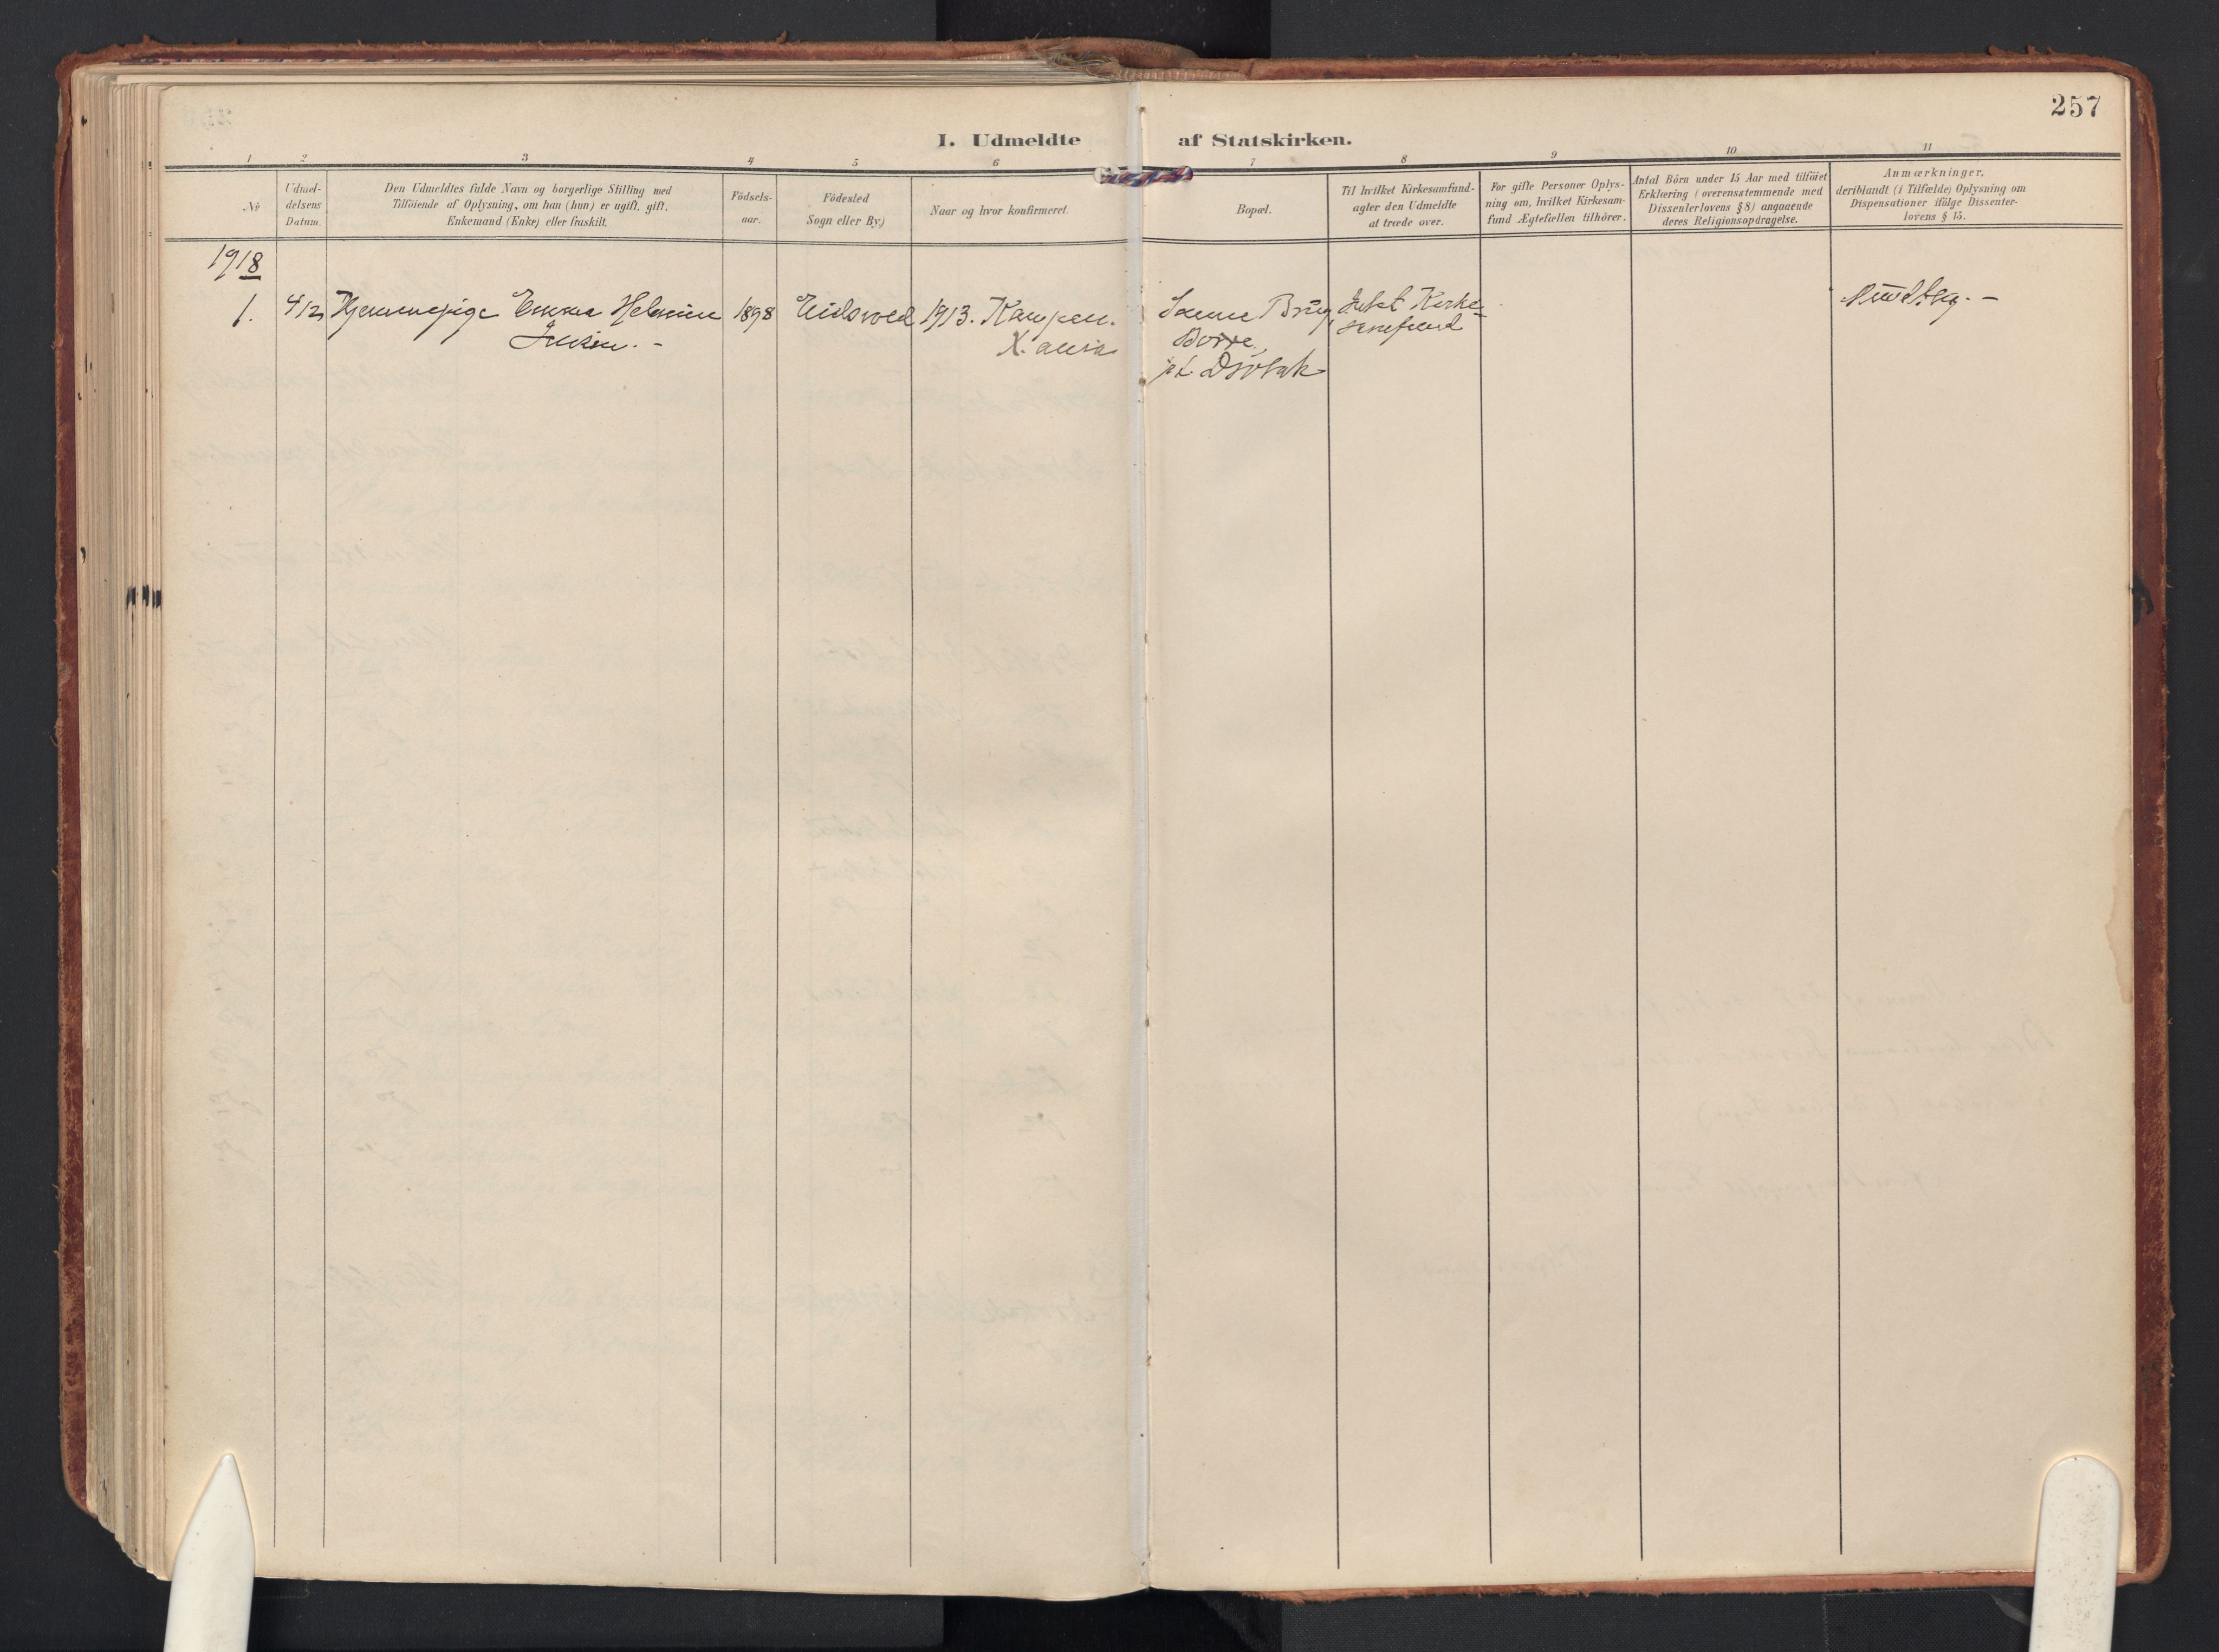 257
I. Udmeldte af Statskirken.
1 2 3 4 5 6 7 8 9 10 11
No
Udmel-
delsens
Datum.
Den Udmeldtes fulde Navn og borgerlige Stilling med
Tilföiende af Oplysning, om han (hun) er ugift, gift,
Enkemand (Enke) eller fraskilt.
Födsels-
aar.
Födested
Sogn eller By.)
Naar og hvor konfirmeret.
Bopæl.
Til hvilket Kirkesamfund-
agter den Udmeldte
at træde over.
For gifte Personer Oplys-
ning om, hvilket Kirkesam-
fund Ægtefællen tilhörer.
Antal Börn under 15 Aar med tilföiet
Erklæring (overensstemmende med
Dissenterlovens § 8) angaaende
deres Religionsopdragelse.
Anmærkninger,
deriblandt (i Tilfælde) Oplysning om
Dispensationer ifölge Dissenter-
lovens § 15.
1918
1. 4/12 Hjemmepige Emma Helmine
Jensen. -
1898
Eidsvold
1913. Kampen.
X.ania
Borre,
p.t. Dröbak
Kirke-
samfund